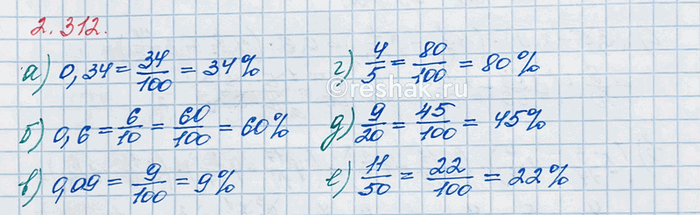 2.312.
а) 0,34 = 34/100 = 34%
б) 0,6 = 6/10 = 60/100 = 60%
в) 0,09 = 9/100 = 9%
г) 4/5 = 80/100 = 80%
д) 9/20 = 45/100 = 45%
е) 11/50 = 22/100 = 22%
reshak.ru